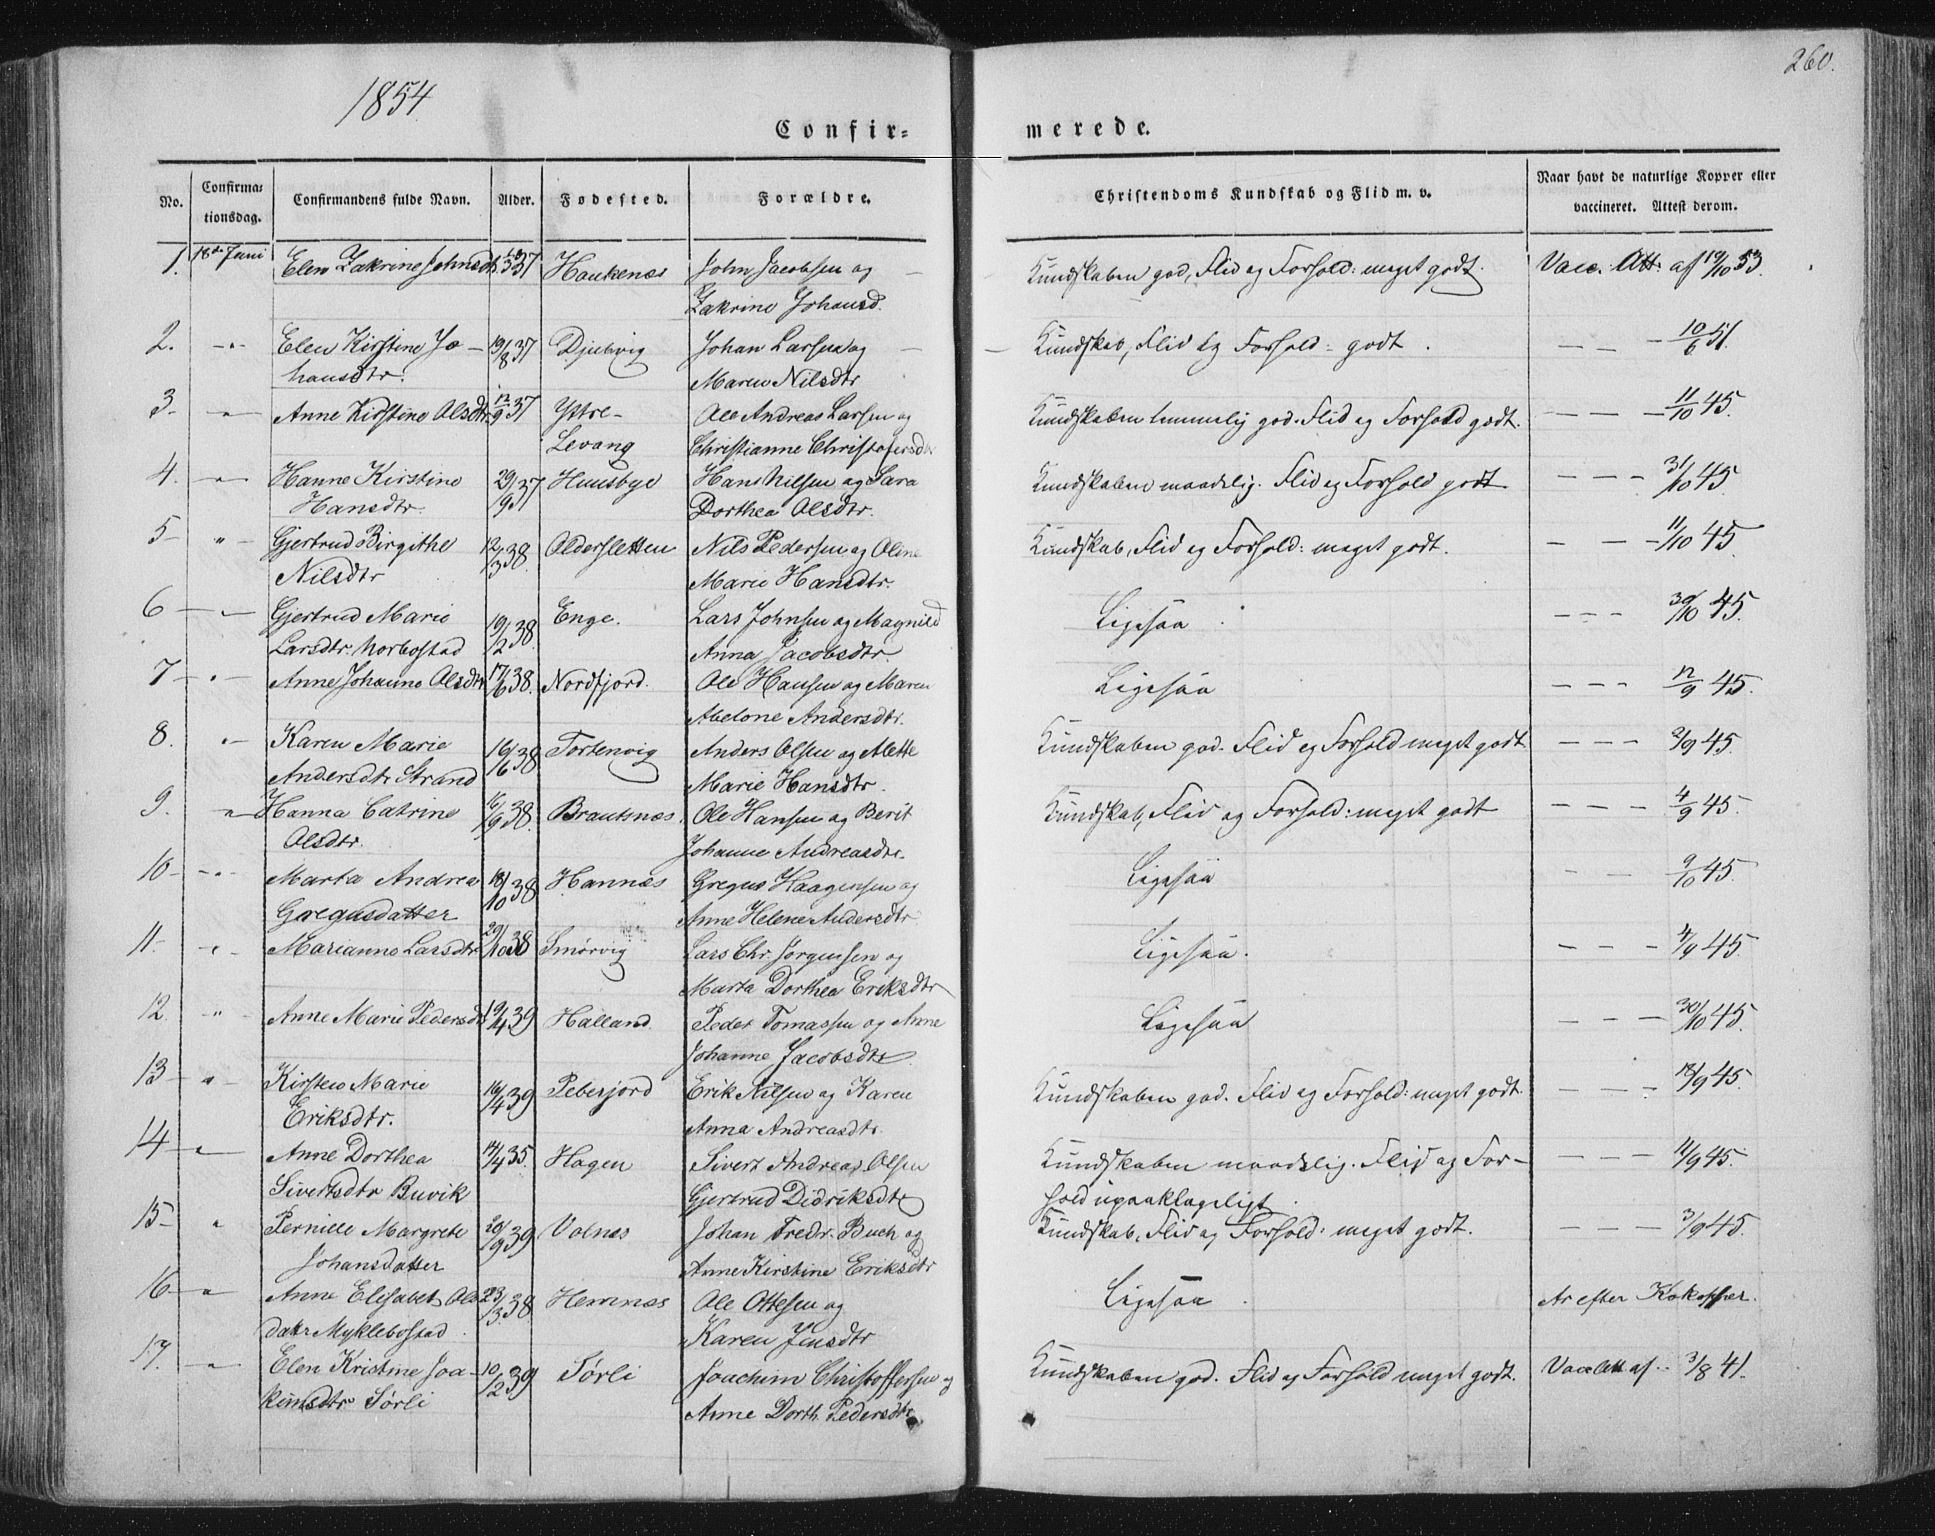 260.
1854
Confir= merede.
No. Confirma= tionsdag. Confirmandens fulde Navn. Alder. Fødested. Forældre. Christendoms Kundskab og Flid m. v. Naar havt de naturlige Kopper eller vaccineret. Attest derom.
1. 18de Juni Elen Zakrine Johnsdtr. 37 Haukenæs John Jacobsen og Kundskaben god, Flid og Forhold: meget godt. Vacc. Att. af 19/10 53.
Zakrine Johansd.
2. -"- Elen Kirstine Jo- 19/8 37 Djubvig Johan Larsen og Kundskab, Flid og Forhold: godt. — — — 10/6 51.
hansdtr. Maren Nilsdtr
3- " Anne Kirstine Olsdtr 12/9 37 Ytre- Ole Andreas Larsen og Kundskaben temmelig god. Flid og Forhold godt. — — — 11/10 45.
Levang Christianne Christofersdtr
4. -"- Hanne Kirstine 29/9 37 Huusbye Hans Nilsen og Sara Kundskaben maadelig. Flid og Forhold godt — — — 31/10 45.
Hansdtr. Dorthea Olsdtr.
5- "- Gjertrud Birgithe 12/3 38. Oldersletten Nils Pedersen og Oline Kundskab, Flid og Forhold: meget godt. — — — 11/10 45
Nilsdtr Marie Hansdtr.
6 — " — Gjertrud Marie 19/2 38. Enge. Lars Johnsen og Magnild Ligesaa. — — — 30/10 45.
Larsdtr. Norbostad Anna Jacobsdtr.
7 — " — Anne Johanne Olsdtr 17/6 38. Nordfjord. Ole Hansen og Maren Ligesaa — — — 12/9 45.
Abelone Andersdtr.
8. "- Karen Marie 16/6 38 Tortenvig Anders Olsen og Alette Kundskaben god. Flid og Forhold meget godt — — — 2/9 45.
Andersdtr Strand Marie Hansdtr.
9. " Hanna Catrine 16/9 38. Brautsnæs. Ole Hansen og Berit Kundskab, Flid og Forhold: meget godt — — — 4/9 45.
Olsdtr. Johanne Andreasdtr.
10- -"- Marta Andrea 18/10 38 Hannæs Gregus Haagensen og Ligesaa 9/10 45.
Gregusdatter Anne Helene Andersdtr
11- " Marianne Larsdtr 29/10 38 Smørvig Lars Chr. Jørgensen og Ligesaa. — — — 4/9 45.
Marta Dorthea Eriksdtr
12. -"- Anne Marie Pedersdtr 19/4 39 Halland. Peder Tomassen og Anne Ligesaa — — — 30/10 45.
Johanne Jacobsdtr
13 — " — Kirsten Marie 16/4 39 Peberjord Erik Nilsen og Karen Kundskaben god. Flid og Forhold: meget godt. — — — 18/9 45.
Eriksdtr. Anna Andreasdtr.
14 " Anne Dorthea 17/4 35. Hagen Sivert Andreas Olsen Kundskaben maadelig. Flid og For- — — — 11/9 45.
Sivertsdtr Buvik Gjertrud Didriksdtr hold upaaklageligt.
15- " Pernille Margrete 20/9 39 Valnæs Johan Fredr. Buch og Kundskab, Flid og Forhold: meget godt. — — — 3/9 45.
Johansdatter Anne Kirstine Eriksdtr
16 — " Anne Elisabet Ols 23/3 38. Hemnæs Ole Ottesen og Ligesaa. Ar efter Kokopper.
datr Myklebostad. Karen Jensdtr
17. " Elen Kristine Joa- 10/2 39 Sørli Joachim Christoffersen og Kundskaben god. Flid og Forhold meget godt. Vacc. Att af 3/8 41.
kimsdtr Sørli Anne Dorth. Pedersdtr